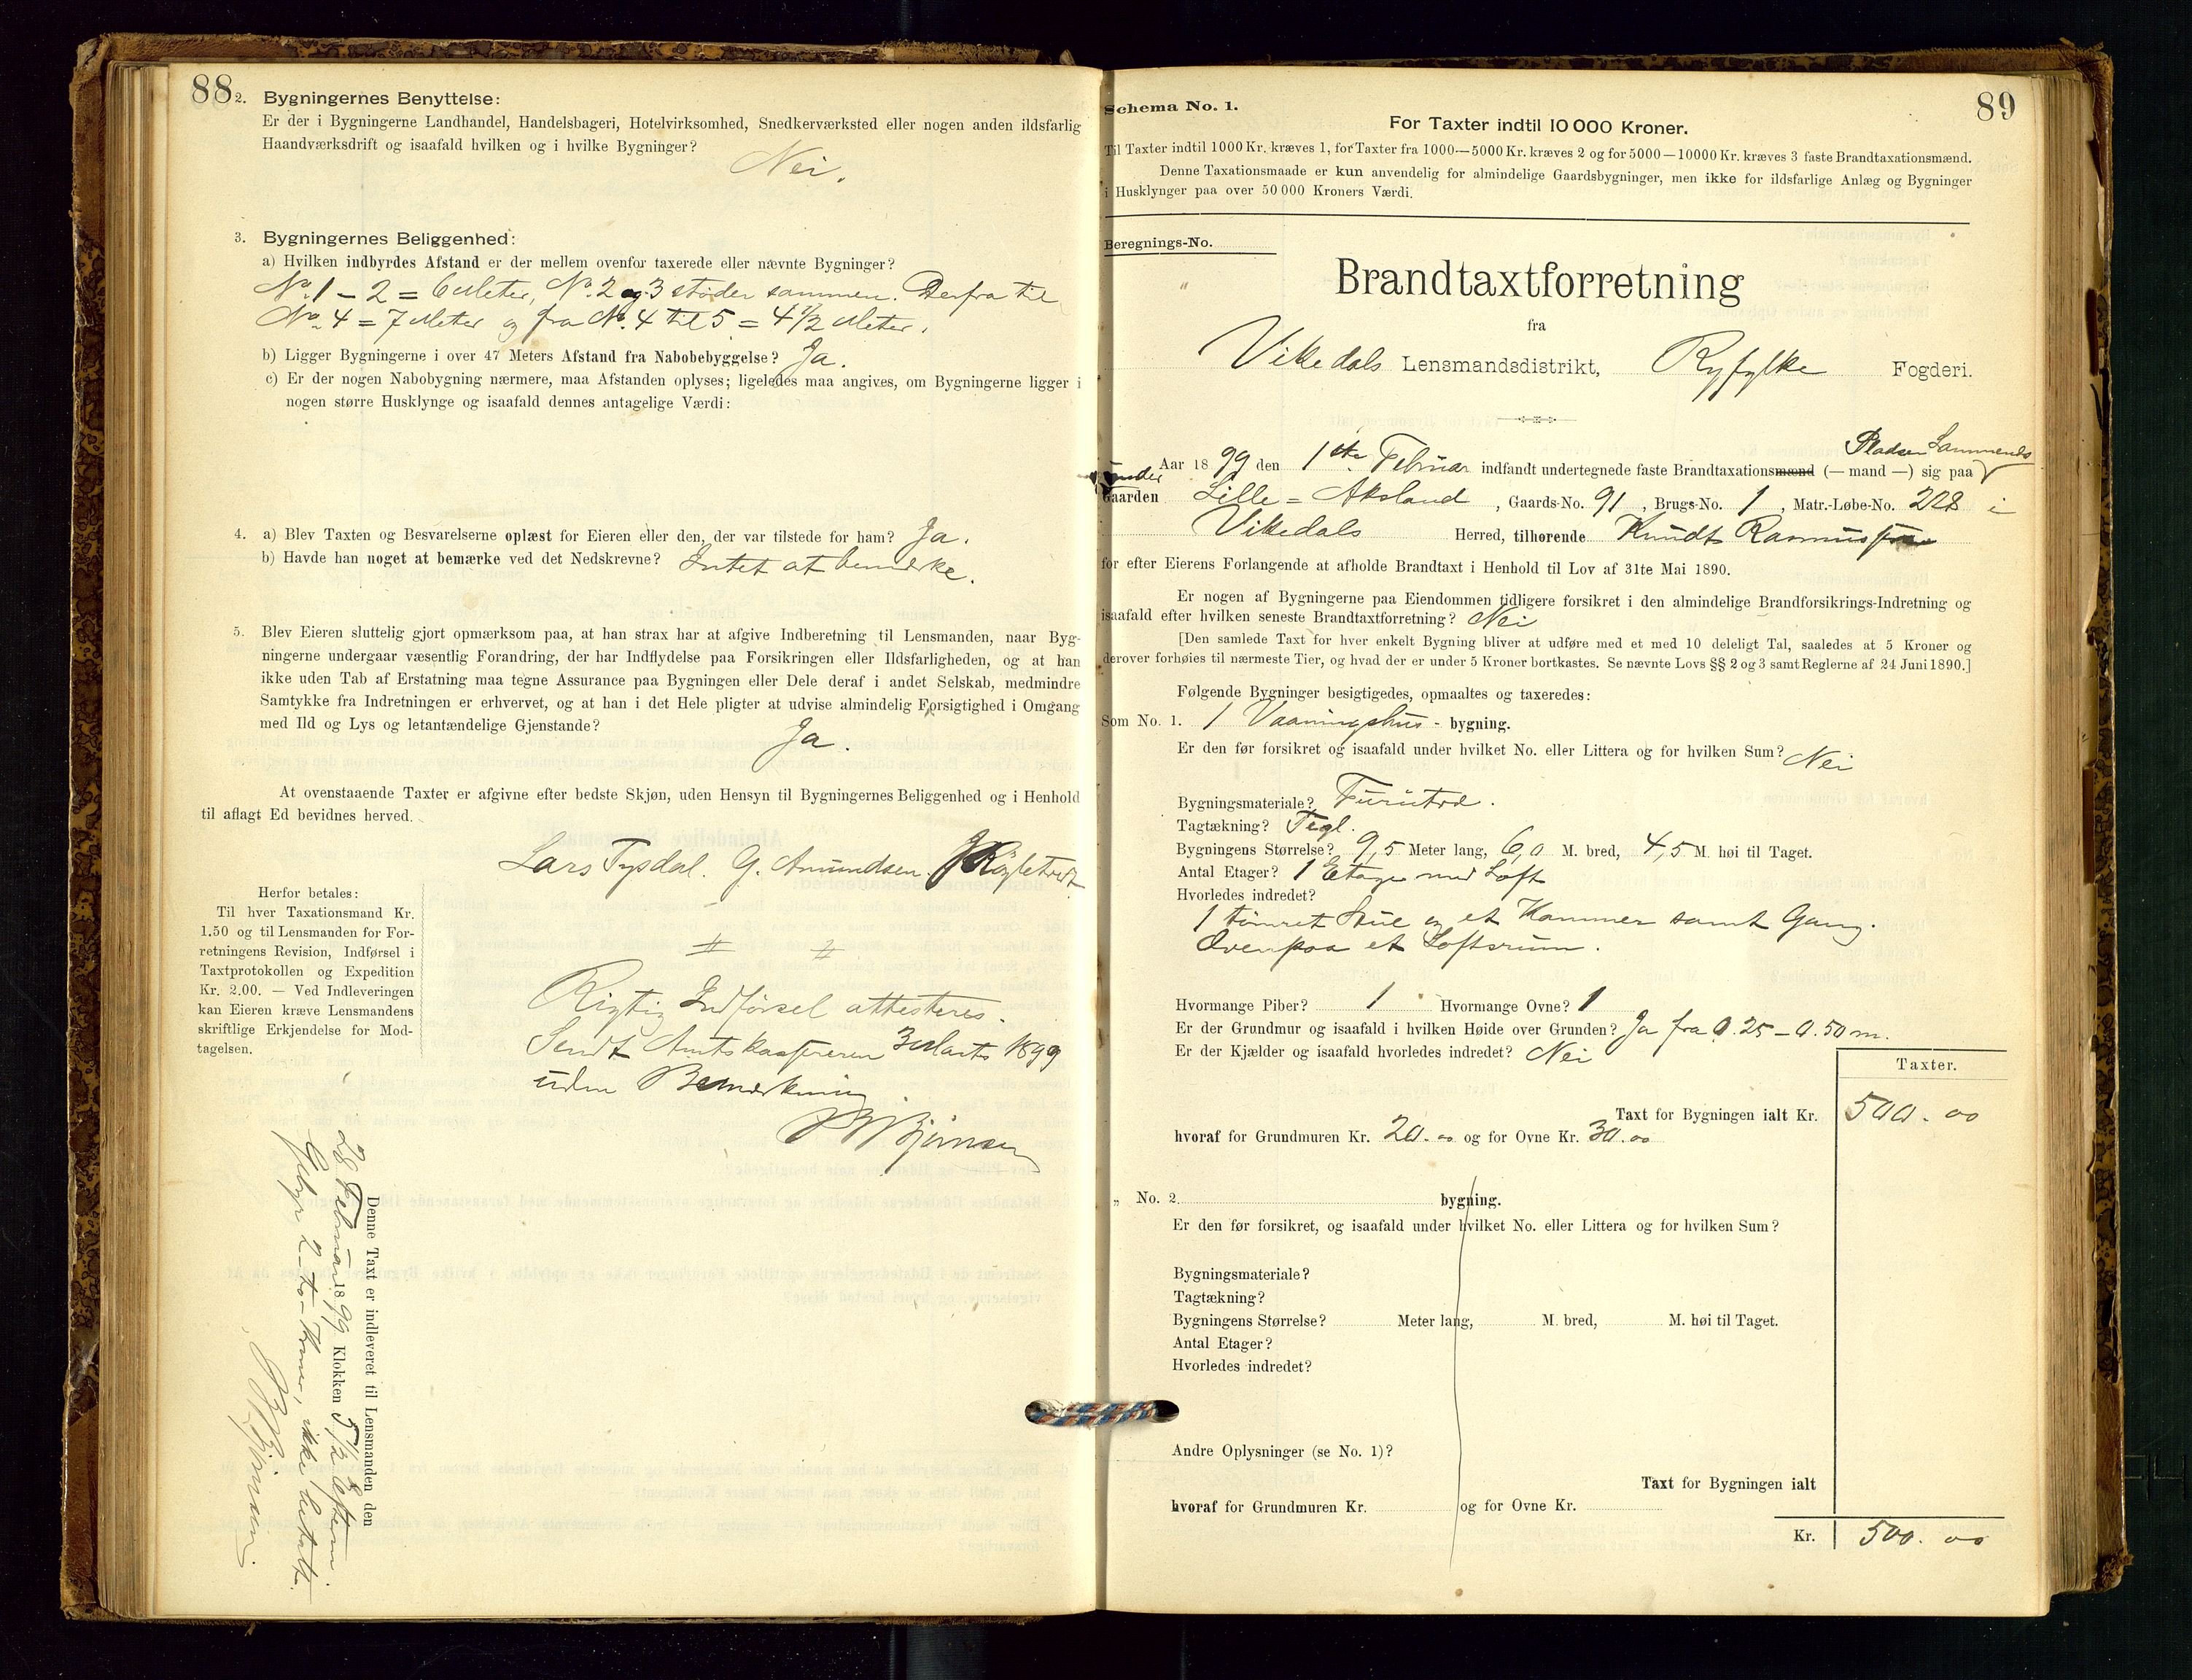 88
2. Bygningernes Benyttelse:
Er der i Bygningerne Landhandel, Handelsbageri, Hotelvirksomhed, Snedkerværksted eller nogen anden ildsfarlig
Haandværksdrift og isaafald hvilken og i hvilke Bygninger?
Nei.
3. Bygningernes Beliggenhed:
a) Hvilken indbyrdes Afstand er der mellem ovenfor taxerede eller nævnte Bygninger?
No. 1 – 2 = 6 Meter, No. 2 og 3 støder sammen. Derfra til
No. 4 = 7 Meter og fra No. 4 til 5 = 4 1/2 Meter.
b) Ligger Bygningerne i over 47 Meters Afstand fra Nabobebyggelse? Ja.
c) Er der nogen Nabobygning nærmere, maa Afstanden oplyses; ligeledes maa angives, om Bygningerne ligger i
nogen større Husklynge og isaafald dennes antagelige Værdi:
4. a) Blev Taxten og Besvarelserne oplæst for Eieren eller den, der var tilstede for ham? Ja.
b) Havde han noget at bemærke ved det Nedskrevne? Intet at bemærke.
5. Blev Eieren sluttelig gjort opmærksom paa, at han strax har at afgive Indberetning til Lensmanden, naar Byg-
ningerne undergaar væsentlig Forandring, der har Indflydelse paa Forsikringen eller Ildsfarligheden, og at han
ikke uden Tab af Erstatning maa tegne Assurance paa Bygningen eller Dele deraf i andet Selskab, medmindre
Samtykke fra Indretningen er erhvervet, og at han i det Hele pligter at udvise almindelig Forsigtighed i Omgang
med Ild og Lys og letantændelige Gjenstande?
Ja.
At ovenstaaende Taxter er afgivne efter bedste Skjøn, uden Hensyn til Bygningernes Beliggenhed og i Henhold
til aflagt Ed bevidnes herved.
Lars Tysdal. G. Amundsen.
Herfor betales:
Til hver Taxationsmand Kr.
1.50 og til Lensmanden for For-
retningens Revision, Indførsel i
Taxtprotokollen og Expedition
Kr. 2.00. — Ved Indleveringen
kan Eieren kræve Lensmandens
skriftlige Erkjendelse for Mod-
tagelsen.
Rigtig Indførsel attesteres.
Sendt Amtskassereren 3 Marts 1899
uden Bemærkning
Denne Taxt er indleveret til Lensmanden den
28 Februar 1899 Klokken 5 1/2 Efterm.
Gebyr 2 – to – Kroner, ikke betalt.
89
Schema No. 1.
For Taxter indtil 10 000 Kroner.
Til Taxter indtil 1000 Kr. kræves 1, for Taxter fra 1000—5000 Kr. kræves 2 og for 5000—10000 Kr. kræves 3 faste Brandtaxationsmænd.
Denne Taxationsmaade er kun anvendelig for almindelige Gaardsbygninger, men ikke for ildsfarlige Anlæg og Bygninger
i Husklynger paa over 50 000 Kroners Værdi.
Beregnings-No.
Brandtaxtforretning
fra
Vikedals Lensmandsdistrikt, Ryfylke Fogderi.
Pladsen
Aar 1899 den 1ste Februar indfandt undertegnede faste Brandtaxationsmænd (— mand —) sig paa
under
Gaarden Lille = Aksland, Gaards-No. 91, Brugs-No. 1, Matr.-Løbe-No. 228 i
Vikedals Herred, tilhørende Knudt Rasmus
for efter Eierens Forlangende at afholde Brandtaxt i Henhold til Lov af 31te Mai 1890.
Er nogen af Bygningerne paa Eiendommen tidligere forsikret i den almindelige Brandforsikrings-Indretning og
isaafald efter hvilken seneste Brandtaxtforretning? Nei
[Den samlede Taxt for hver enkelt Bygning bliver at udføre med et med 10 deleligt Tal, saaledes at 5 Kroner og
derover forhøies til nærmeste Tier, og hvad der er under 5 Kroner bortkastes. Se nævnte Lovs §§ 2 og 3 samt Reglerne af 24 Juni 1890.]
Følgende Bygninger besigtigedes, opmaaltes og taxeredes:
Som No. 1. 1 Vaaningshus - bygning.
Er den før forsikret og isaafald under hvilket No. eller Littera og for hvilken Sum? Nei
Bygningsmateriale? Furutræ.
Tagtækning? Tegl.
Bygningens Størrelse? 9,5 Meter lang, 6,0 M. bred, 4,5 M. høi til Taget.
Antal Etager? 1 Etage med Loft
Hvorledes indredet?
1 tømret Stue og et Kammer samt Gang.
Ovenpaa et Loftsrum.
Hvormange Piber? 1 Hvormange Ovne? 1
Er der Grundmur og isaafald i hvilken Høide over Grunden? Ja fra 0.25 – 0.50 m.
Er der Kjælder og isaafald hvorledes indredet? Nei
Taxter.
Taxt for Bygningen ialt Kr. 500. 00
hvoraf for Grundmuren Kr. 20.00 og for Ovne Kr. 30.00
„ No. 2. bygning.
Er den før forsikret, og isaafald under hvilket No. eller Littera og for hvilken Sum?
Bygningsmateriale?
Tagtækning?
Bygningens Størrelse? Meter lang, M. bred, M. høi til Taget.
Antal Etager?
Hvorledes indredet?
Andre Oplysninger (se No. 1)?
Taxt for Bygningen ialt
hvoraf for Grundmuren Kr. og for Ovne Kr.
Kr. 500. 00